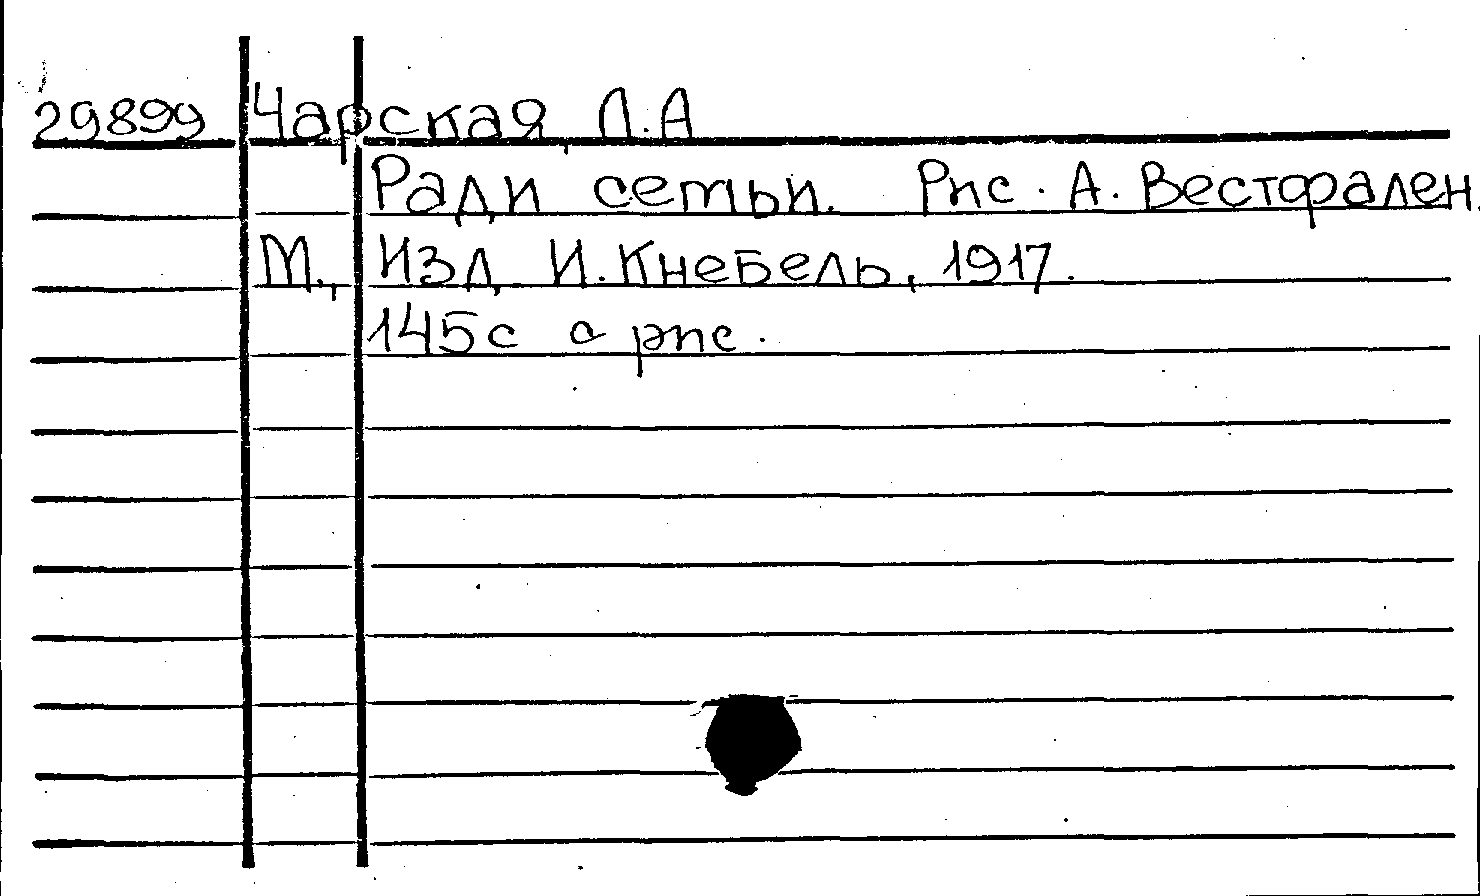 29899 Чарская, Л.А
Ради семьи. Рис. А. Вестфален.
М., Изд. И. Кнебель, 1917.
145с с рис.